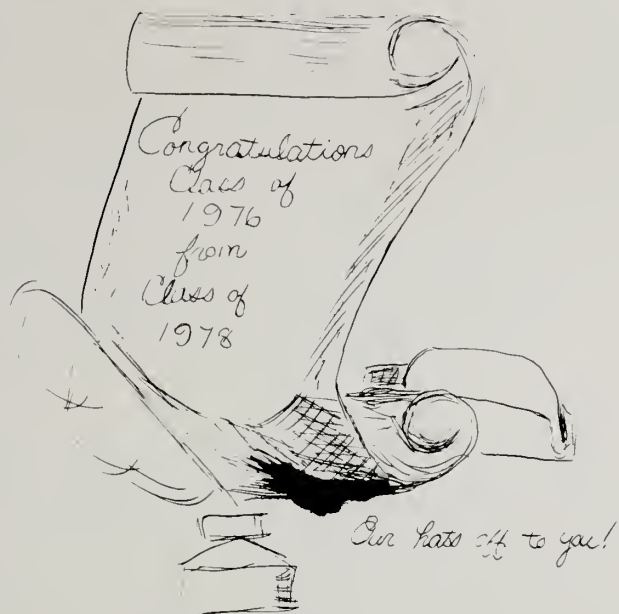 Congratulations
Class of
1976
from
Class of
1978
Our hats off to you!